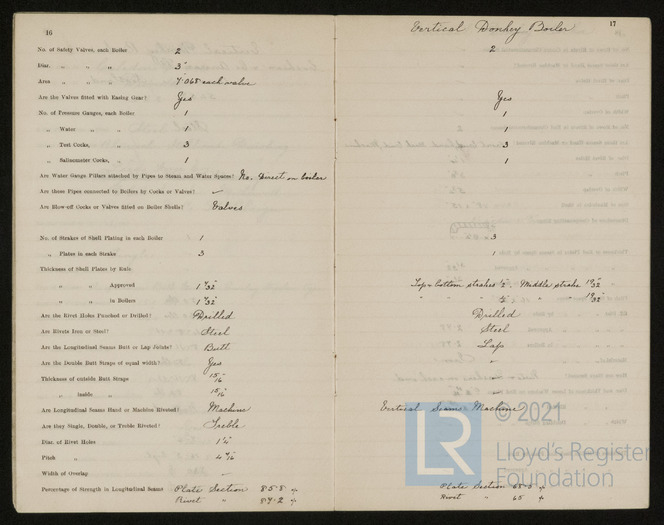 16
No. of Safety Valves, each Boiler 2
Diar. „ „ „ 3"
Area „ „ 7.068 each valve
Are the Valves fitted with Easing Gear? Yes
No. of Pressure Gauges, each Boiler 1
„ Water „ „ 1
„ Test Cocks, „ 3
„ Salinometer Cocks, „ 1
Are Water Gauge Pillars attached by Pipes to Steam and Water Spaces? No. Direct on boiler
Are these Pipes connected to Boilers by Cocks or Valves? —
Are Blow-off Cocks or Valves fitted on Boiler Shells? Valves
No. of Strakes of Shell Plating in each Boiler 1
„ Plates in each Strake 3
Thickness of Shell Plates by Rule
„ „ Approved 1 7/32"
„ „ in Boilers 1 7/32"
Are the Rivet Holes Punched or Drilled? Drilled
Are Rivets Iron or Steel? Steel
Are the Longitudinal Seams Butt or Lap Joints? Butt
Are the Double Butt Straps of equal width? Yes
Thickness of outside Butt Straps 15/16"
„ inside „ 15/16"
Are Longitudinal Seams Hand or Machine Riveted? Machine
Are they Single, Double, or Treble Riveted? Treble
Diar. of Rivet Holes 1 1/4"
Pitch „
Width of Overlap —
Percentage of Strength in Longitudinal Seams Plate Section 85.8 %
Rivet „ 89.2 %
17
Vertical Donkey Boiler
2
Yes
1
1
3
1
3
1
Top & bottom strakes 1/2" Middle strake 19/32"
„ „ „ 1/2" „ „ 19/32"
Drilled
Steel
Lap
Vertical Seams Machine
Plate Section
Rivet „ 65 %
© 2021
Lloyd's Register
Foundation
LR